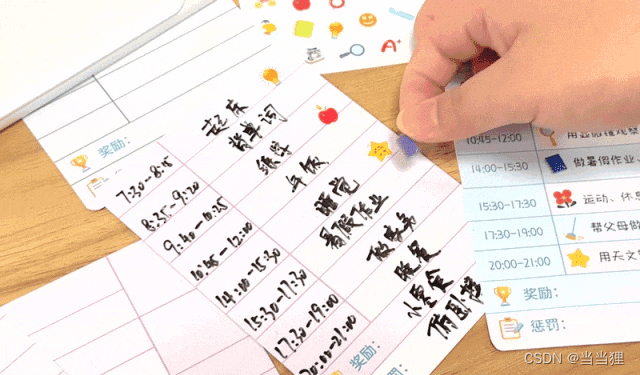 A+
奖励:
起床
背单词
练字
午饭
睡觉
暑假作业
做家务
小零食
俯卧撑
8:35-9:20
9:40-10:25
10:45-12:00
14:00-15:30
15:30-17:30
17:30-19:00
20:00-21:00
奖励:
10:45-12:00
14:00-15:30 做暑假作业、
15:30-17:30 运动、休息
17:30-19:00 帮父母做
20:00-21:00 用天文
奖励:
惩罚:
CSDN @当当狸